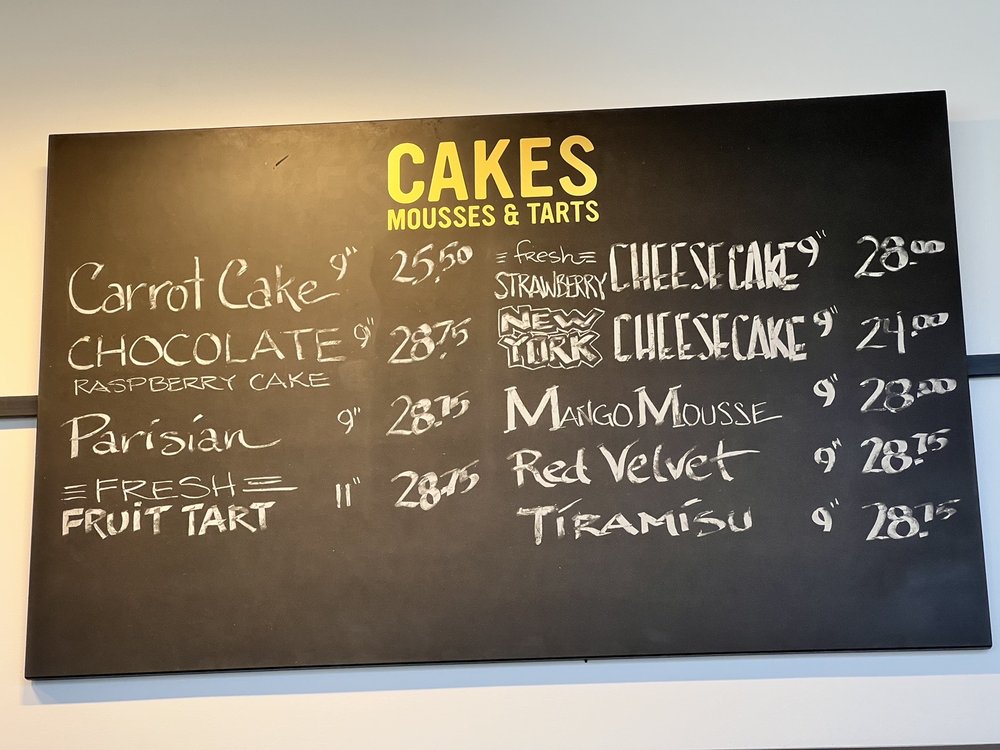 CAKES
MOUSSES & TARTS
Carrot Cake 9" 25.50
CHOCOLATE 9" 28.75
RASPBERRY CAKE
Parisian 9" 28.75
FRESH
FRUIT TART 11" 28.75
fresh
STRAWBERRY CHEESECAKE 9" 28.00
NEW
YORK CHEESECAKE 9" 24.00
MANGO MOUSSE 9" 28.00
Red Velvet 9" 28.75
TIRAMISU 9" 28.75